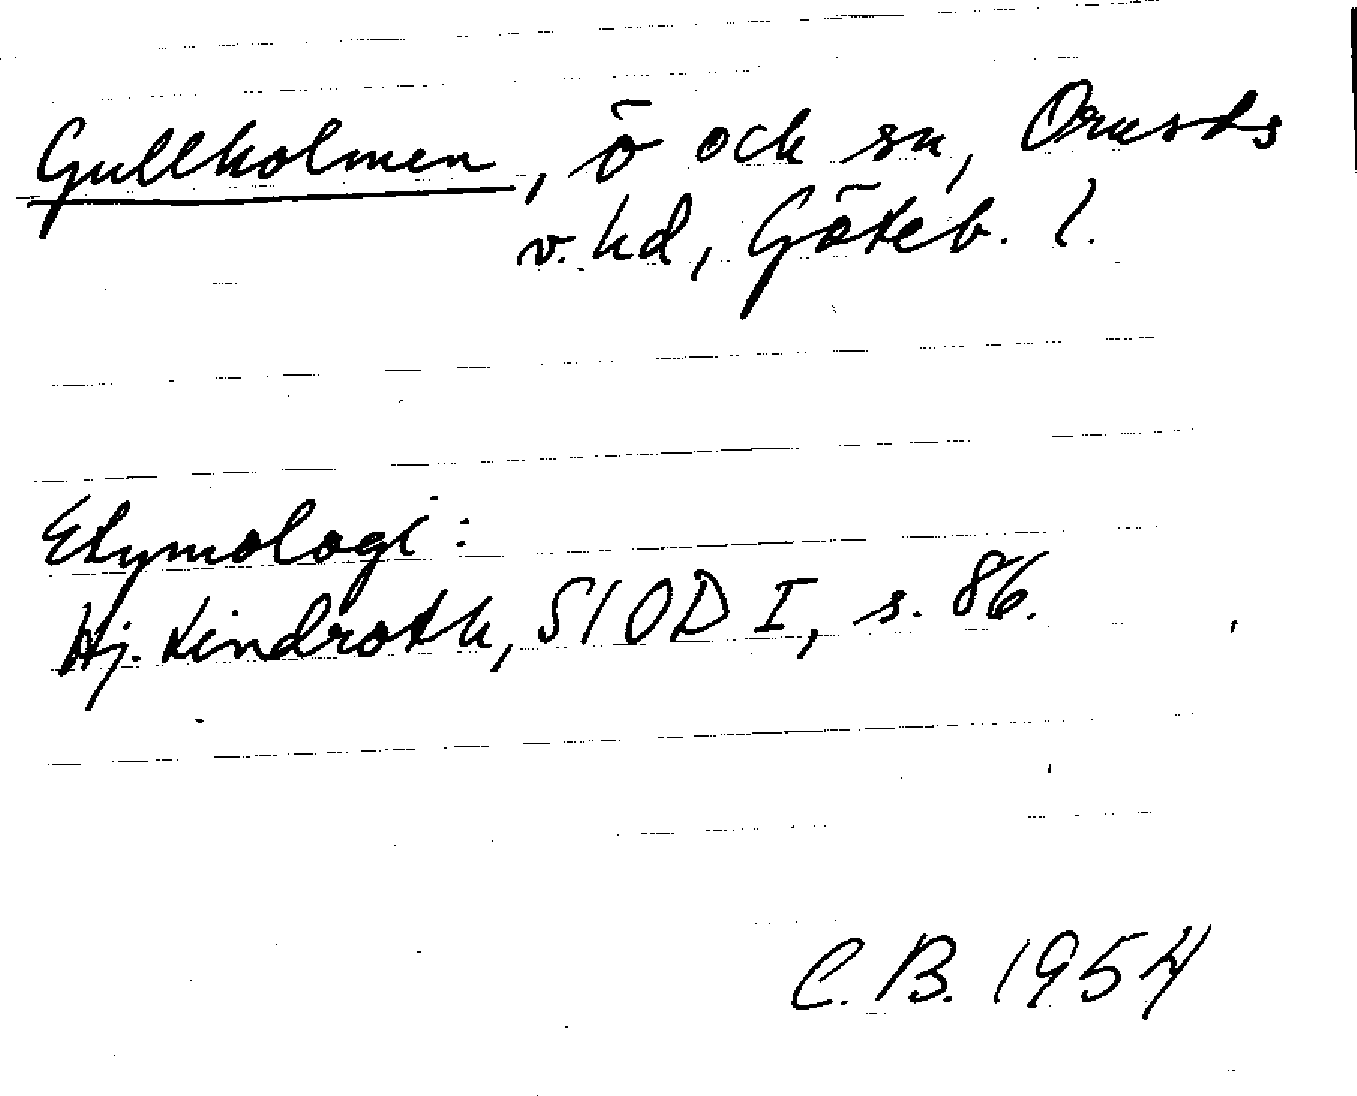 Gullholmen, ö och sn, Orusts
v. hd, Göteb. l.
Etymologi:
Hj. Lindroth, SIOD I, s. 86.
C. B. 1954